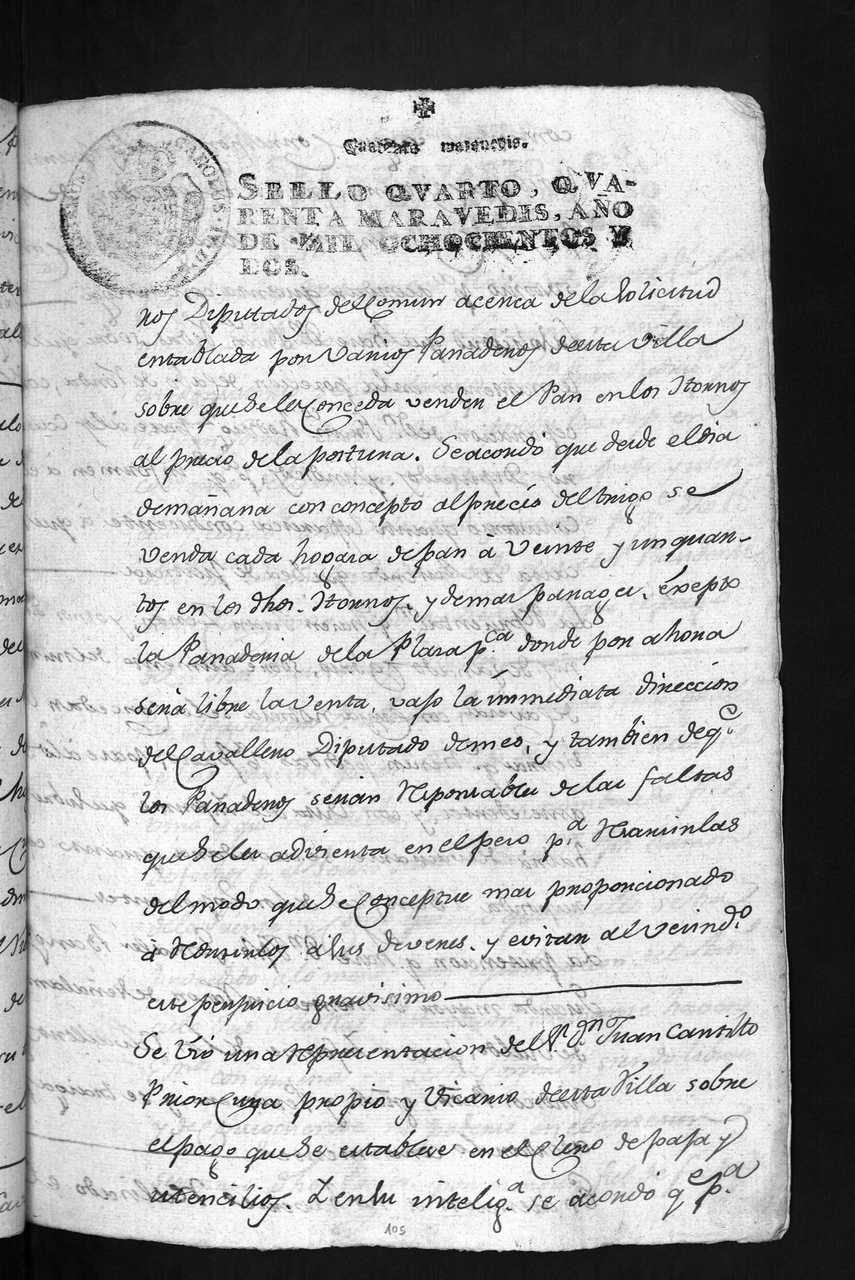 Quarenta maravedis.
SELLO QVARTO, QVA-
RENTA MARAVEDIS, AÑO
DE MIL OCHOCIENTOS Y
DOS.
CAROLUS IV D
nos Diputados del Comun acerca de la Solicitud
entablada por varios Panaderos de esta Villa
sobre que se les Conceda vender el Pan en los Hornos
al precio de la postura. Se acordó que desde el dia
de mañana con concepto al precio del trigo se
venda cada hogaza de pan à veinte y un quar-
tos en los dhos. Hornos, y demas parages, éxepto
la Panaderia de la Plaza p.ca donde por ahora
será libre la venta, vajo la immediata direccion
del Cavallero Diputado de mes, y tambien de q.e
los Panaderos serán responsables de las faltas
que se les advierta en el peso p.a
del modo que se Conceptue mas proporcionado
à reducirlos a sus deveres, y evitar al vecind.o
este perjuicio gravisimo
Se vió una representacion del S.r d.n Juan Castillo
Prior Cura propio y Vicario de esta Villa sobre
el pago que se establece en el Clero de paja y
utencilios. Y en su intelig.a se acordó q.e p.a
105